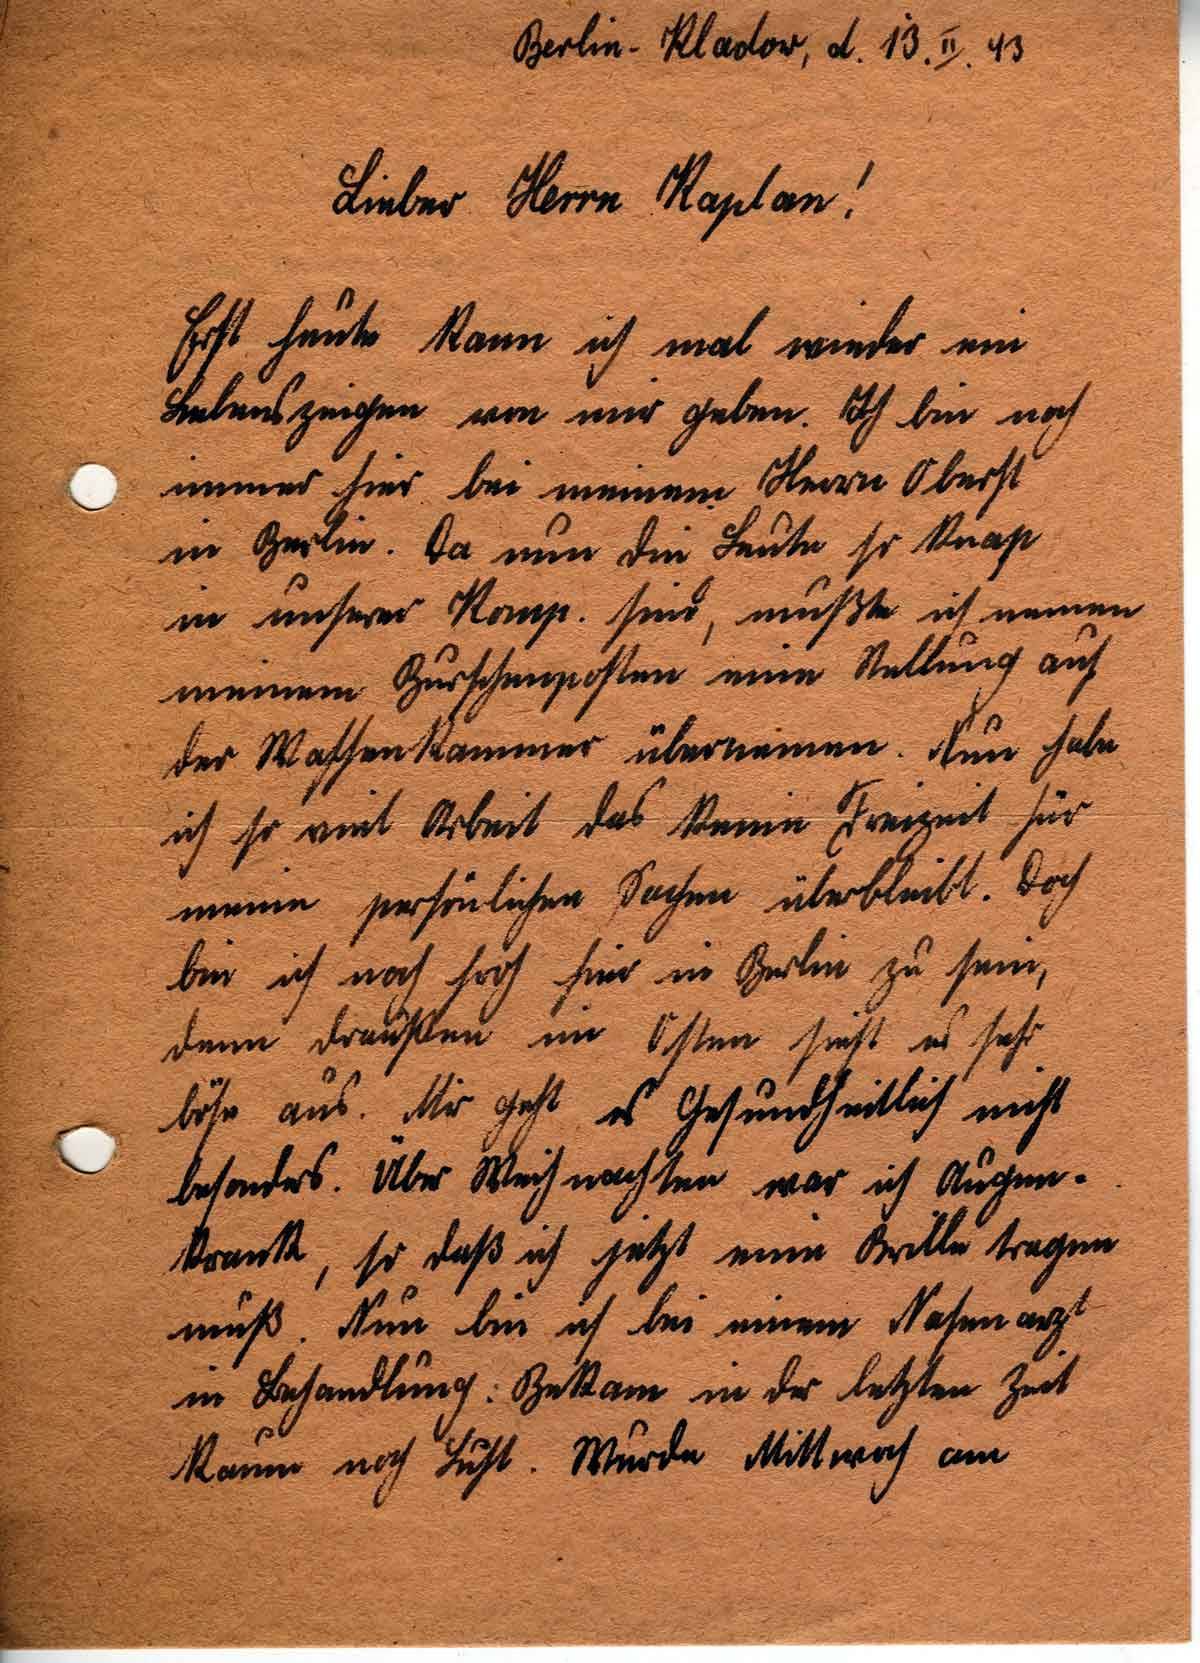 Berlin-Kladow, d. 13.II.43
Lieber Herrn Kaplan!
Erst heute kann ich mal wieder ein
Lebenszeigen von mir geben. Ich bin noch
immer hier bei meinem Herrn Oberst
in Berlin. Da nun die Leute so knap
in unserer Komp. sind, mußte ich nemen
meinem Burschenposten eine Stellung auf
der Waffenkammer übernemen. Nun habe
ich so viel Arbeit das keine Freizeit für
meine persönlichen Sachen überbleibt. Doch
bin ich noch froh hier in Berlin zu sein,
denn draußen im Osten sieht es sehr
böse aus. Mir geht es Gesundheitlich nicht
besonders. Über Weihnachten war ich Augen-
krank, so daß ich jetzt eine Brille tragen
muß. Nun bin ich bei einem Nasenarzt
in Behandlung: Bekam in der letzten Zeit
kaum noch Luft. Wurde Mittwoch am